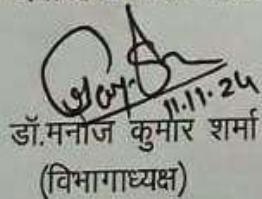 11.11.24
डॉ.मनोज कुमार शर्मा
(विभागाध्यक्ष)